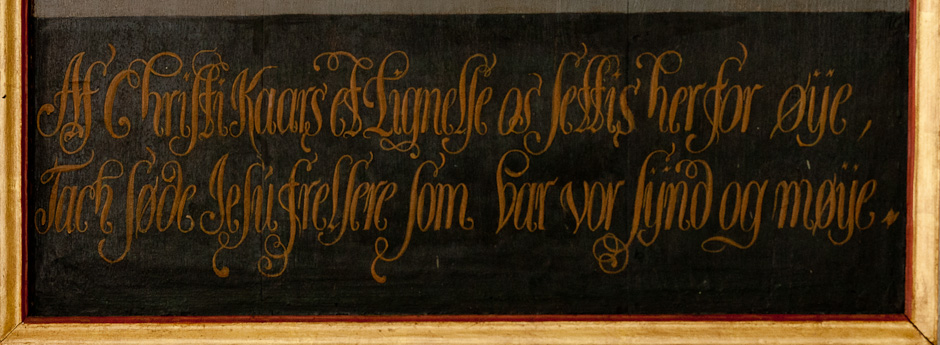 Aff Christi Kaars et Lignelse os settis her for øije,
Tach søde Jesu frelsere som bar vor synd og møije.